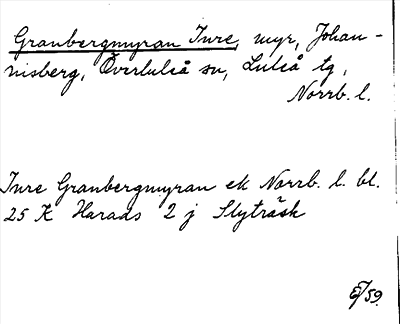 Granbergmyran Inre, myr, Johan-
nisberg, Överluleå sn, Luleå tg,
Norrb. l.
Inre Granbergmyran ek Norrb. l. bl.
25 K Harads 2 j Slyträsk
/59.